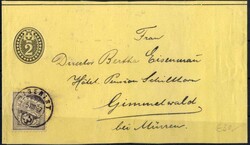 Frau
2
Director Bertha Eisenmann
Hôtel Pension Schilthorn
Gimmelwald
bei Mürren.